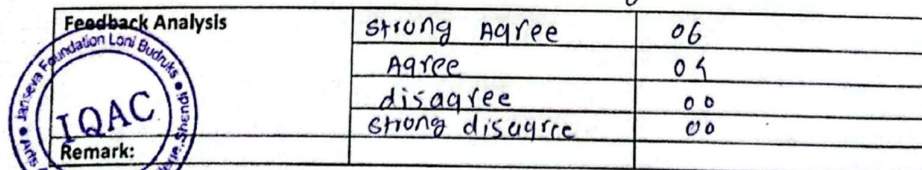 Feedback Analysis
strong Agree 06
Agree
disagree 00
strong disagree 00
Remark:
Janseva Foundation Loni Budruks
IQAC
Arts